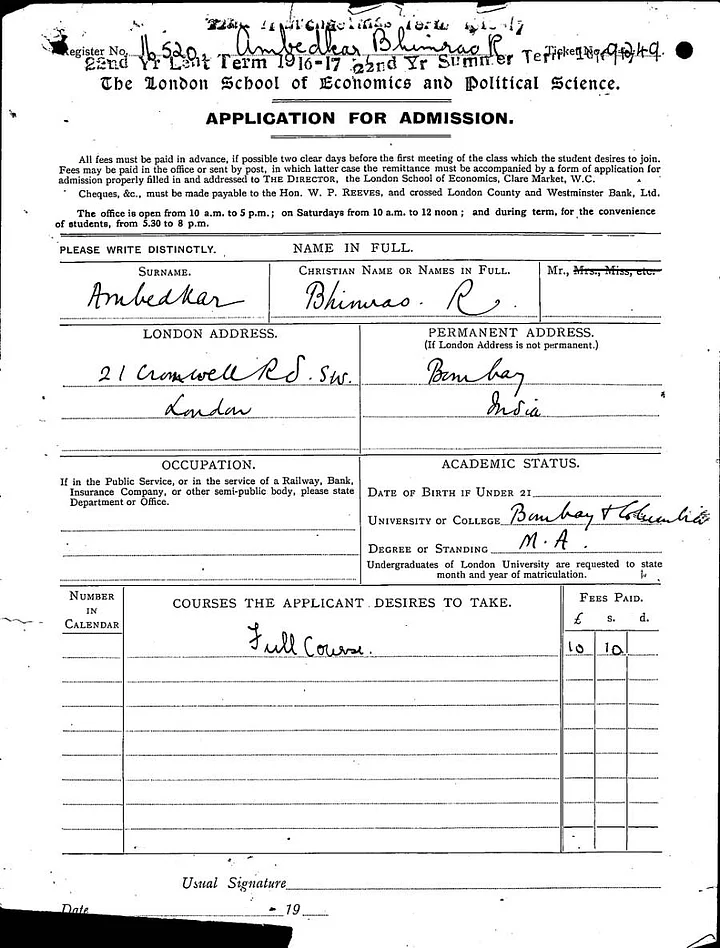 22nd Michaelmas Term 1916-17
Register No. 16520. Ambedkar Bhimrao R Ticket No.
22nd Yr Lent Term 1916-17 22nd Yr Summer Term
The London School of Economics and Political Science.
APPLICATION FOR ADMISSION.
All fees must be paid in advance, if possible two clear days before the first meeting of the class which the student desires to join.
Fees may be paid in the office or sent by post, in which latter case the remittance must be accompanied by a form of application for
admission properly filled in and addressed to THE DIRECTOR, the London School of Economics, Clare Market, W.C.
Cheques, &c., must be made payable to the Hon. W. P. REEVES, and crossed London County and Westminster Bank, Ltd.
The office is open from 10 a.m. to 5 p.m.; on Saturdays from 10 a.m. to 12 noon; and during term, for the convenience
of students, from 5.30 to 8 p.m.
PLEASE WRITE DISTINCTLY. NAME IN FULL.
SURNAME. CHRISTIAN NAME OR NAMES IN FULL. Mr., Mrs., Miss, etc.
Ambedkar Bhimrao. R.
LONDON ADDRESS. PERMANENT ADDRESS.
(If London Address is not permanent.)
21 Cromwell Rd. SW. Bombay
London India
OCCUPATION. ACADEMIC STATUS.
If in the Public Service, or in the service of a Railway, Bank,
Insurance Company, or other semi-public body, please state
Department or Office.
DATE OF BIRTH IF UNDER 21
UNIVERSITY OR COLLEGE Bombay & Columbia
DEGREE OR STANDING M.A.
Undergraduates of London University are requested to state
month and year of matriculation.
NUMBER IN CALENDAR COURSES THE APPLICANT DESIRES TO TAKE. FEES PAID.
£ s. d.
Full Course. 10 10
Usual Signature
Date 19